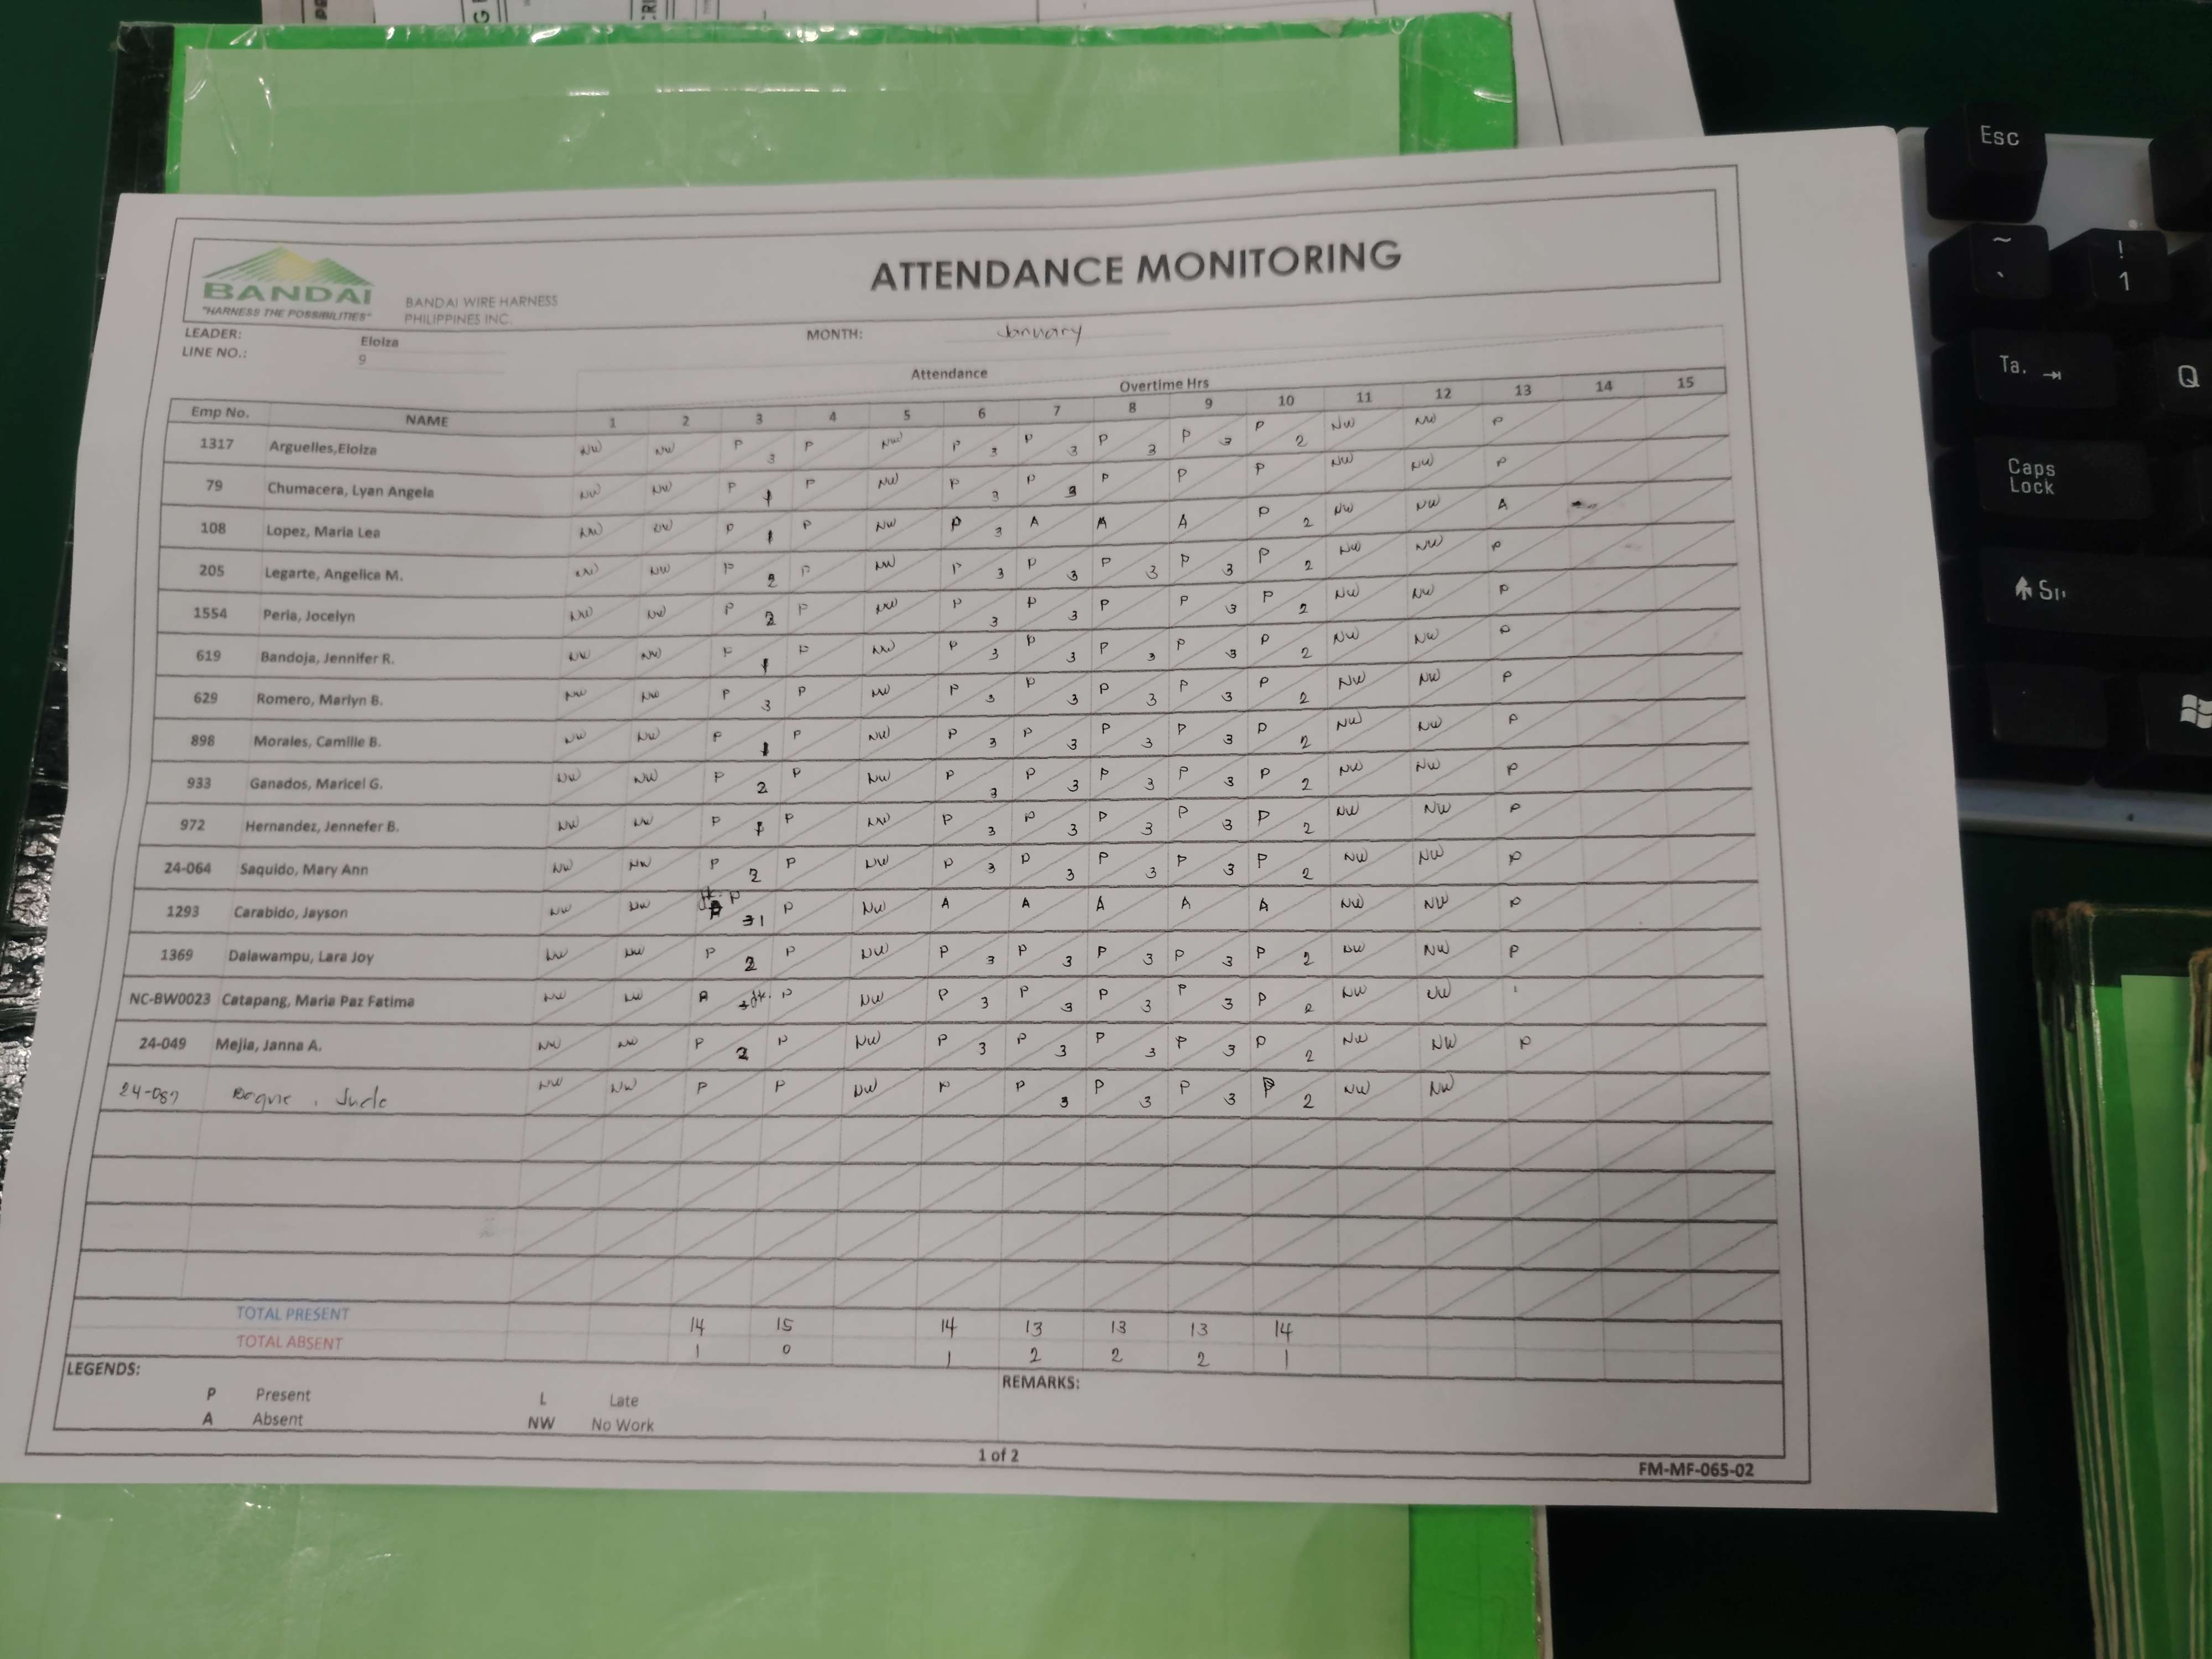 ATTENDANCE MONITORING
BANDAI
"HARNESS THE POSSIBILITIES"
BANDAI WIRE HARNESS
PHILIPPINES INC.
LEADER: Eloiza MONTH: January
LINE NO.: 9
Attendance
Overtime Hrs
Emp No. NAME 1 2 3 4 5 6 7 8 9 10 11 12 13 14 15
1317 Arguelles,Eloiza NW NW P 3 P NW P 3 P 3 P 3 P 3 P 2 NW NW P
79 Chumacera, Lyan Angela NW NW P 1 P NW P 3 P 3 P P P NW NW P
108 Lopez, Maria Lea NW NW P 1 P NW P 3 A A A P 2 NW NW A
205 Legarte, Angelica M. NW NW P 2 P NW P 3 P 3 P 3 P 3 P 2 NW NW P
1554 Peria, Jocelyn NW NW P 2 P NW P 3 P 3 P P 3 P 2 NW NW P
619 Bandoja, Jennifer R. NW NW P 1 P NW P 3 P 3 P 3 P 3 P 2 NW NW P
629 Romero, Marlyn B. NW NW P 3 P NW P 3 P 3 P 3 P 3 P 2 NW NW P
898 Morales, Camille B. NW NW P 1 P NW P 3 P 3 P 3 P 3 P 2 NW NW P
933 Ganados, Maricel G. NW NW P 2 P NW P 3 P 3 P 3 P 3 P 2 NW NW P
972 Hernandez, Jennefer B. NW NW P 1 P NW P 3 P 3 P 3 P 3 P 2 NW NW P
24-064 Saquido, Mary Ann NW NW P 2 P NW P 3 P 3 P 3 P 3 P 2 NW NW P
1293 Carabido, Jayson NW NW P 1 P NW A A A A A NW NW P
1369 Dalawampu, Lara Joy NW NW P 2 P NW P 3 P 3 P 3 P 3 P 2 NW NW P
NC-BW0023 Catapang, Maria Paz Fatima NW NW A P NW P 3 P 3 P 3 P 3 P 2 NW NW
24-049 Mejia, Janna A. NW NW P 2 P NW P 3 P 3 P 3 P 3 P 2 NW NW P
24-087 Jude NW NW P P NW P P 3 P 3 P 3 P 2 NW NW
TOTAL PRESENT 14 15 14 13 13 13 14
TOTAL ABSENT 1 0 1 2 2 2 1
LEGENDS: REMARKS:
P Present L Late
A Absent NW No Work
1 of 2
FM-MF-065-02
Esc
~ `
! 1
Q
Caps
Lock